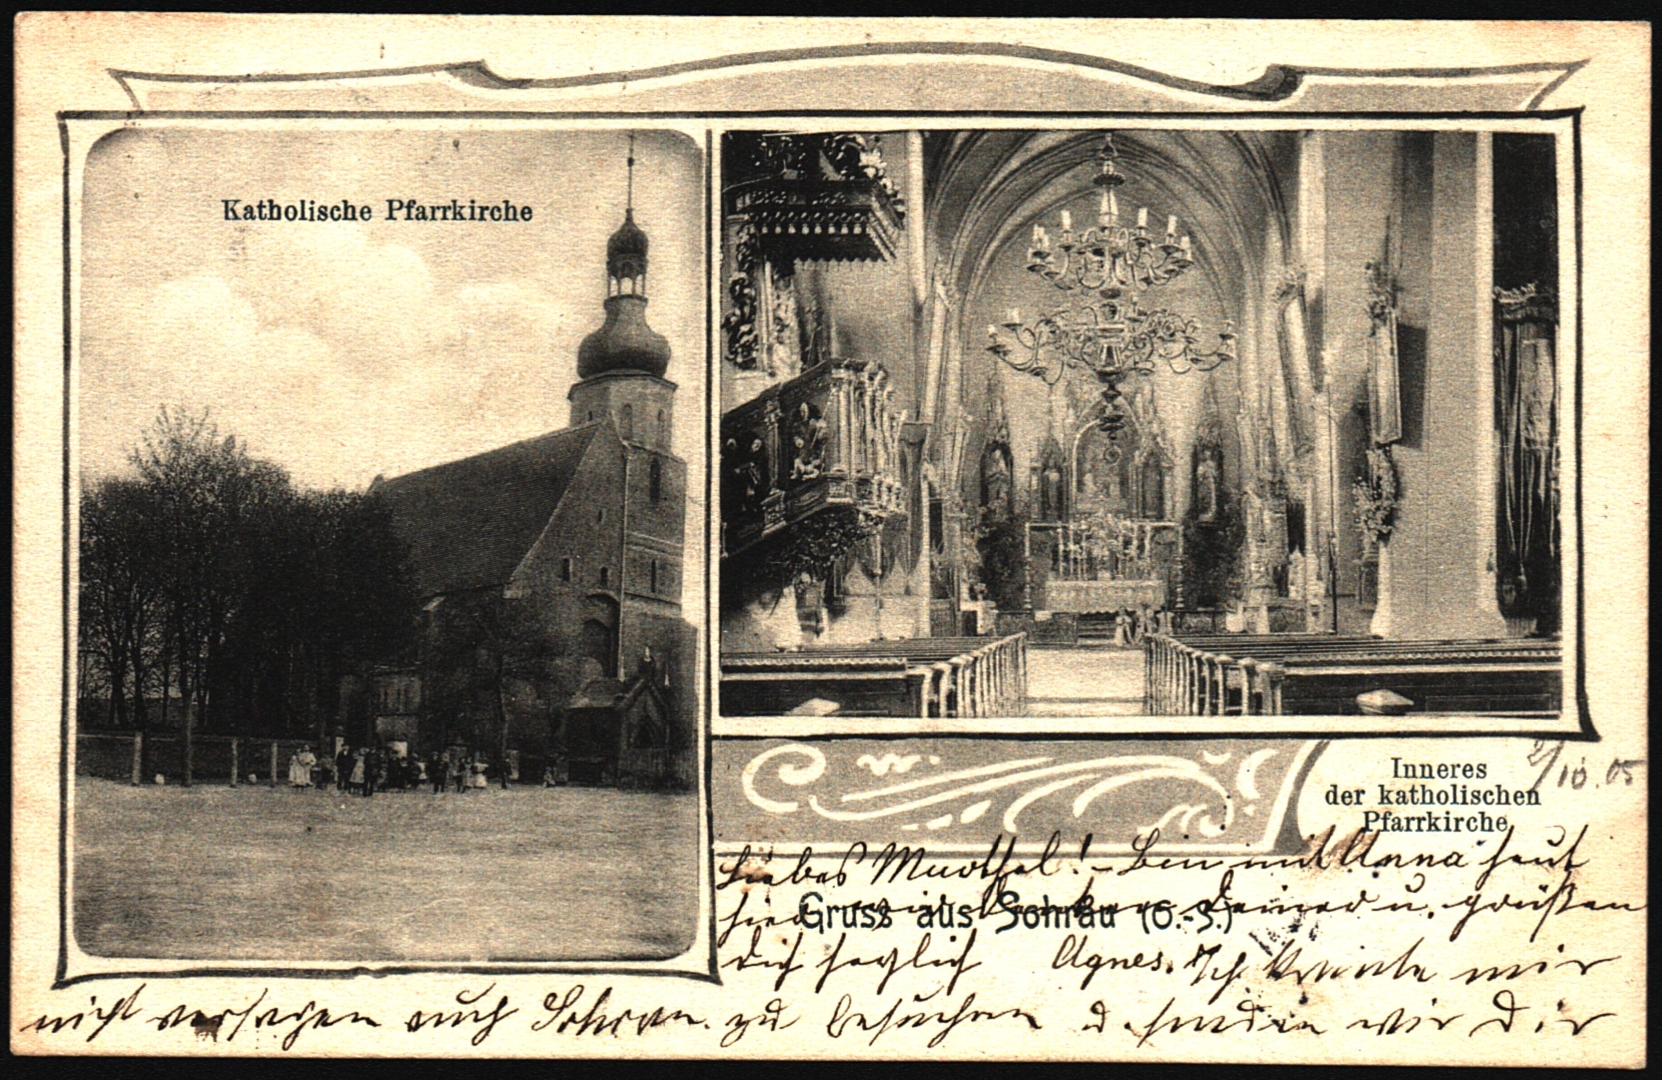 Katholische Pfarrkirche
Inneres
der katholischen
Pfarrkirche
2/10.05
Gruss aus Sohrau (O.-S.)
Liebes Muothel! - Bin mit Anna heut
hier Deiner u. grüßen
dich herzlich Agnes. Ich konnte mir
nicht versagen auch Sohrau zu besuchen u. senden wir Dir